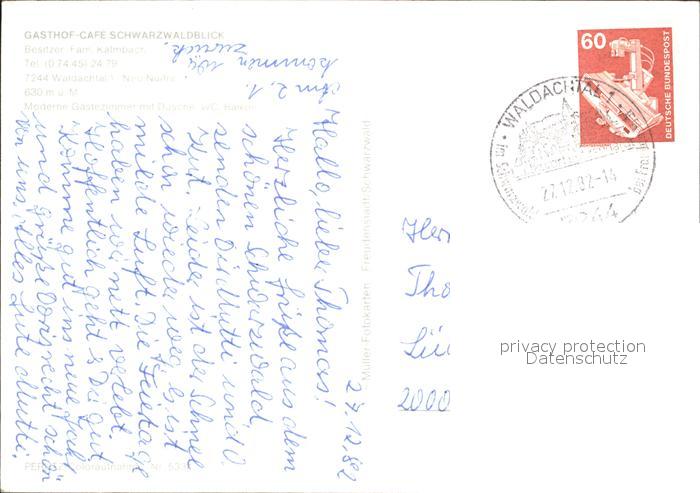 GASTHOF-CAFE SCHWARZWALDBLICK
Besitzer: Fam. Kalmbach
Tel. (0 74 45) 24 79
7244 Waldachtal 1 - Neu-Nuifra
630 m ü. M.
Moderne Gästezimmer mit Dusche, WC, Balkon
27.12.82
Hallo, lieber Thomas!
Herzliche Grüße aus dem
schönen Schwarzwald,
senden Dir Mutti und
Leider ist der Schnee
schon wieder weg, es ist
milde Luft. Die Feiertage
haben wir nett verlebt.
Hoffentlich geht's Dir gut
Komme gut ins neue Jahr
und grüße Doris recht schön
von uns, Alles Gute Mutti.
Am 2.1.
kommen wir
zurück.
Müller-Fotokarten Freudenstadt-Schwarzwald
60
DEUTSCHE BUNDESPOST
WALDACHTAL 1
27.12.82-14
7244
Her
Tho
2000
privacy protection
Datenschutz